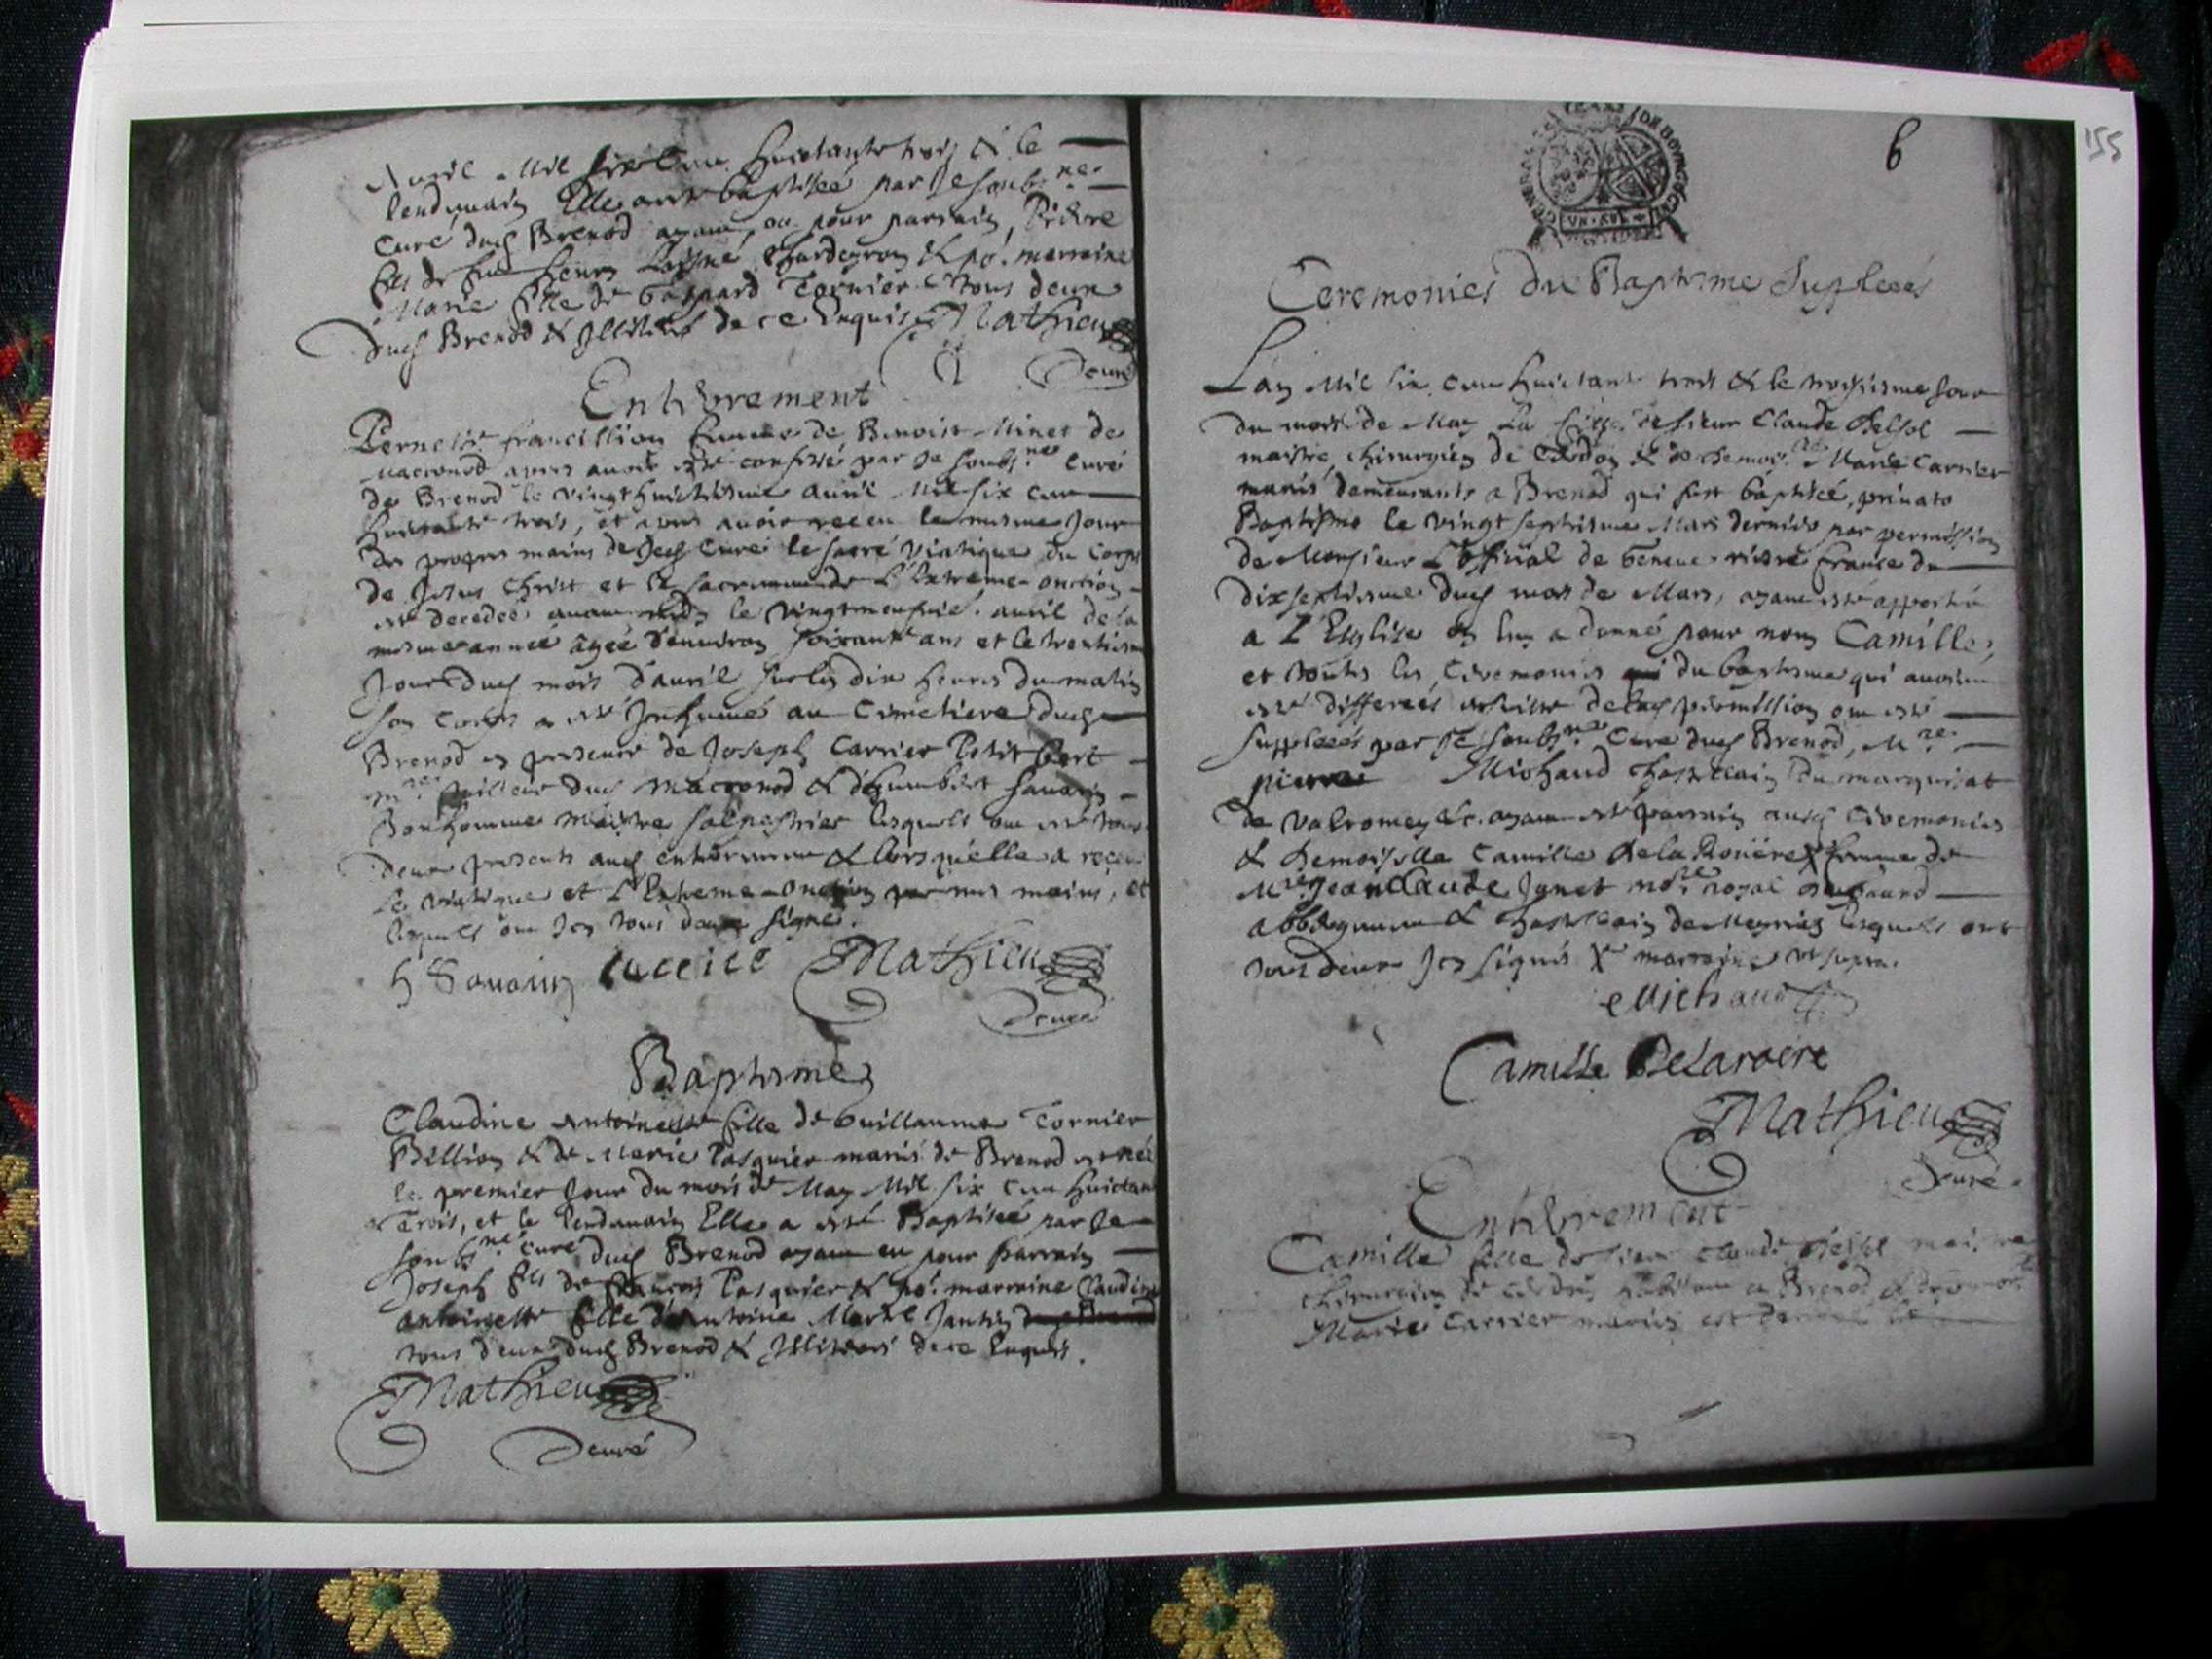 Avril Mil six Cens huictante trois & le
lendemain Elle a esté baptisée par Je soubs.né
Curé dud Brenod ayant eu pour parrain, Pierre
fils de feu henry & po.r marraine
Marie fille de Gaspard Tornier tous deux
Dud Brenod & Illiterés de ce Enquis Mathieu
Curé
Enterrement
Pernette francillion femme de Benoist Minet de
Macconod apres avoir esté confessé par Je soubs.né Curé
de Brenod le vingt huictiesme avril Mil six cens
huictante trois, et apres avoir receu le mesme Jour
des propres mains de Curé le sacré Viatique du Corps
de Jesus Christ et le sacrement de L'Extreme-onction
est decedée avant midy le vingtneufvie. avril de la
mesme année âgée d'environ soixante ans et le trentiesme
Jour dud mois d'avril sur les dix heures du matin
son Corps a esté Inhumé au Cimetiere dud
Brenod en presence de Joseph Carrier Petit
dud Macconod & d'humbert Savarin
Bonhomme Maistre salpestrier lesquels ont esté tous
deux presents aud enterrement & lors qu'elle a receu
Le viatique et L'Extreme-onction par mes mains, et
lesquels ont Icy tous deux signé.
h Savarin Carrier Mathieu
Curé
Baptesme
Claudine Antoinette fille de Guillaume Tornier
Billion & de Marie Pasquier mariés de Brenod est née
le premier Jour du mois de May Mil six cens huictante
Trois, et le lendemain Elle a esté Baptisée par Je
soubs.né Curé dud Brenod ayant eu pour parrain
Joseph fils de François Pasquier & po.r marraine Claudine
antoinette fille d'Antoine Martel Jantin
tous deux dud Brenod & Illiterés de ce Enquis.
Mathieu
Curé
155
6
Ceremonies du Baptesme Supleées
Lan Mil six cens huictante trois & le troisiesme Jour
du mois de May La fille de sieur Claude Delsol
maistre chirurgien de & de demois.lle Marie Carrier
mariés demeurants a Brenod qui fust baptisée, privato
Baptismo le vingt septiesme Mars dernier par permission
de Monsieur L'official de Geneve riere france du
dixseptiesme dud mois de Mars, ayant esté apportée
a L'Esglise on luy a donné pour nom Camille,
et toutes les Ceremonies du baptesme qui avoient
esté differées ensuitte de lad permission ont esté
suppleées par Je soubs.né Curé dud Brenod, M.re
pierre Michaud chastelain du marquisat
de Valromey &c. ayant esté parrain ausd Ceremonies
& Demoiselle Camille De la Rouere femme de
M.re Jean Claude Jynet no.re royal
& chastelain de Meyriat lesquels ont
tous deux Icy signés marraine ut supra.
Michaud
Camille Delaroere
Mathieu
Curé
Enterrement
Camille fille de sieur Claude Delsol maistre
chirurgien de habitant a Brenod & de demois.lle
Marie Carrier mariés est decedée le